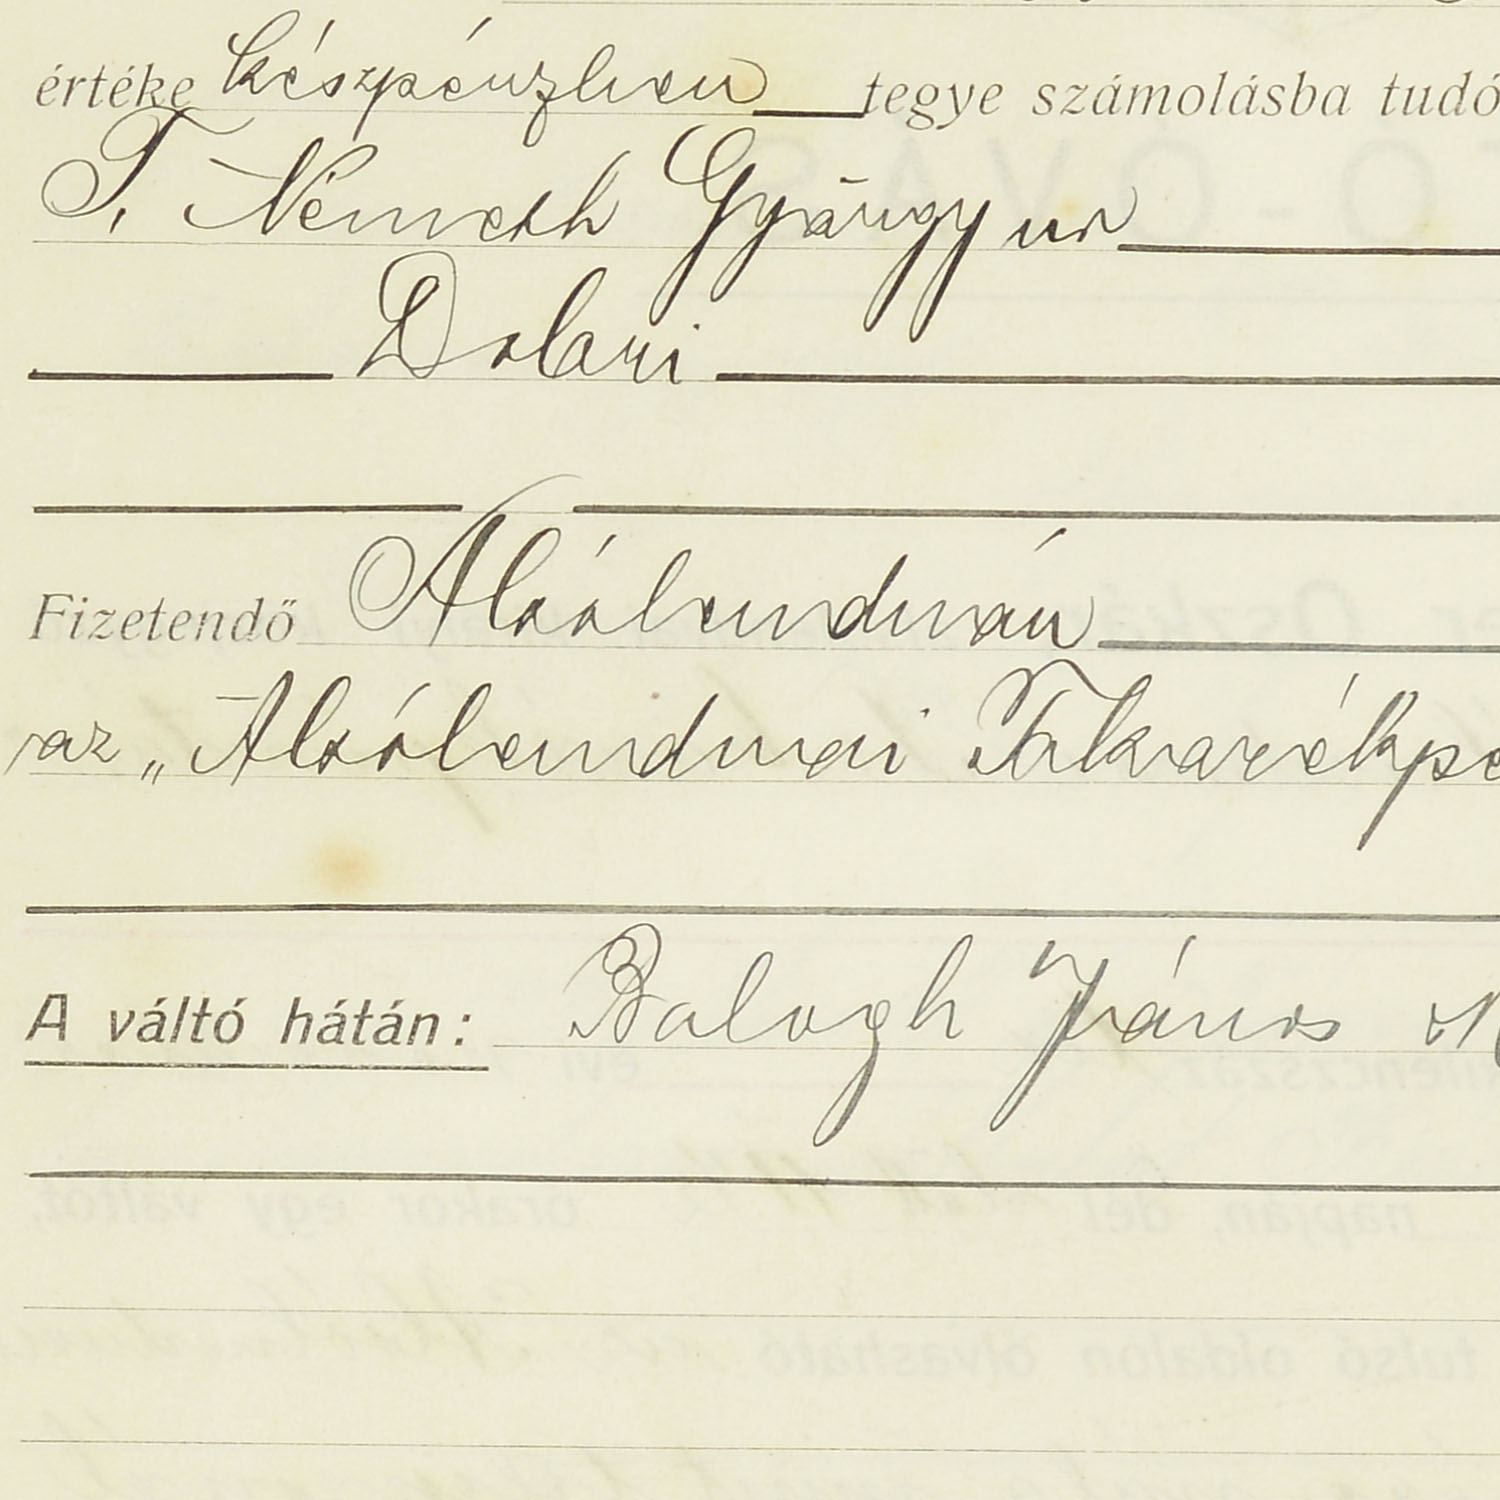 értéke készpénzben tegye számolásba tudó
T. Németh György úr
Dobri
Fizetendő Alsólendván
az „Alsólendvai Takarékpé
A váltó hátán: Balogh János